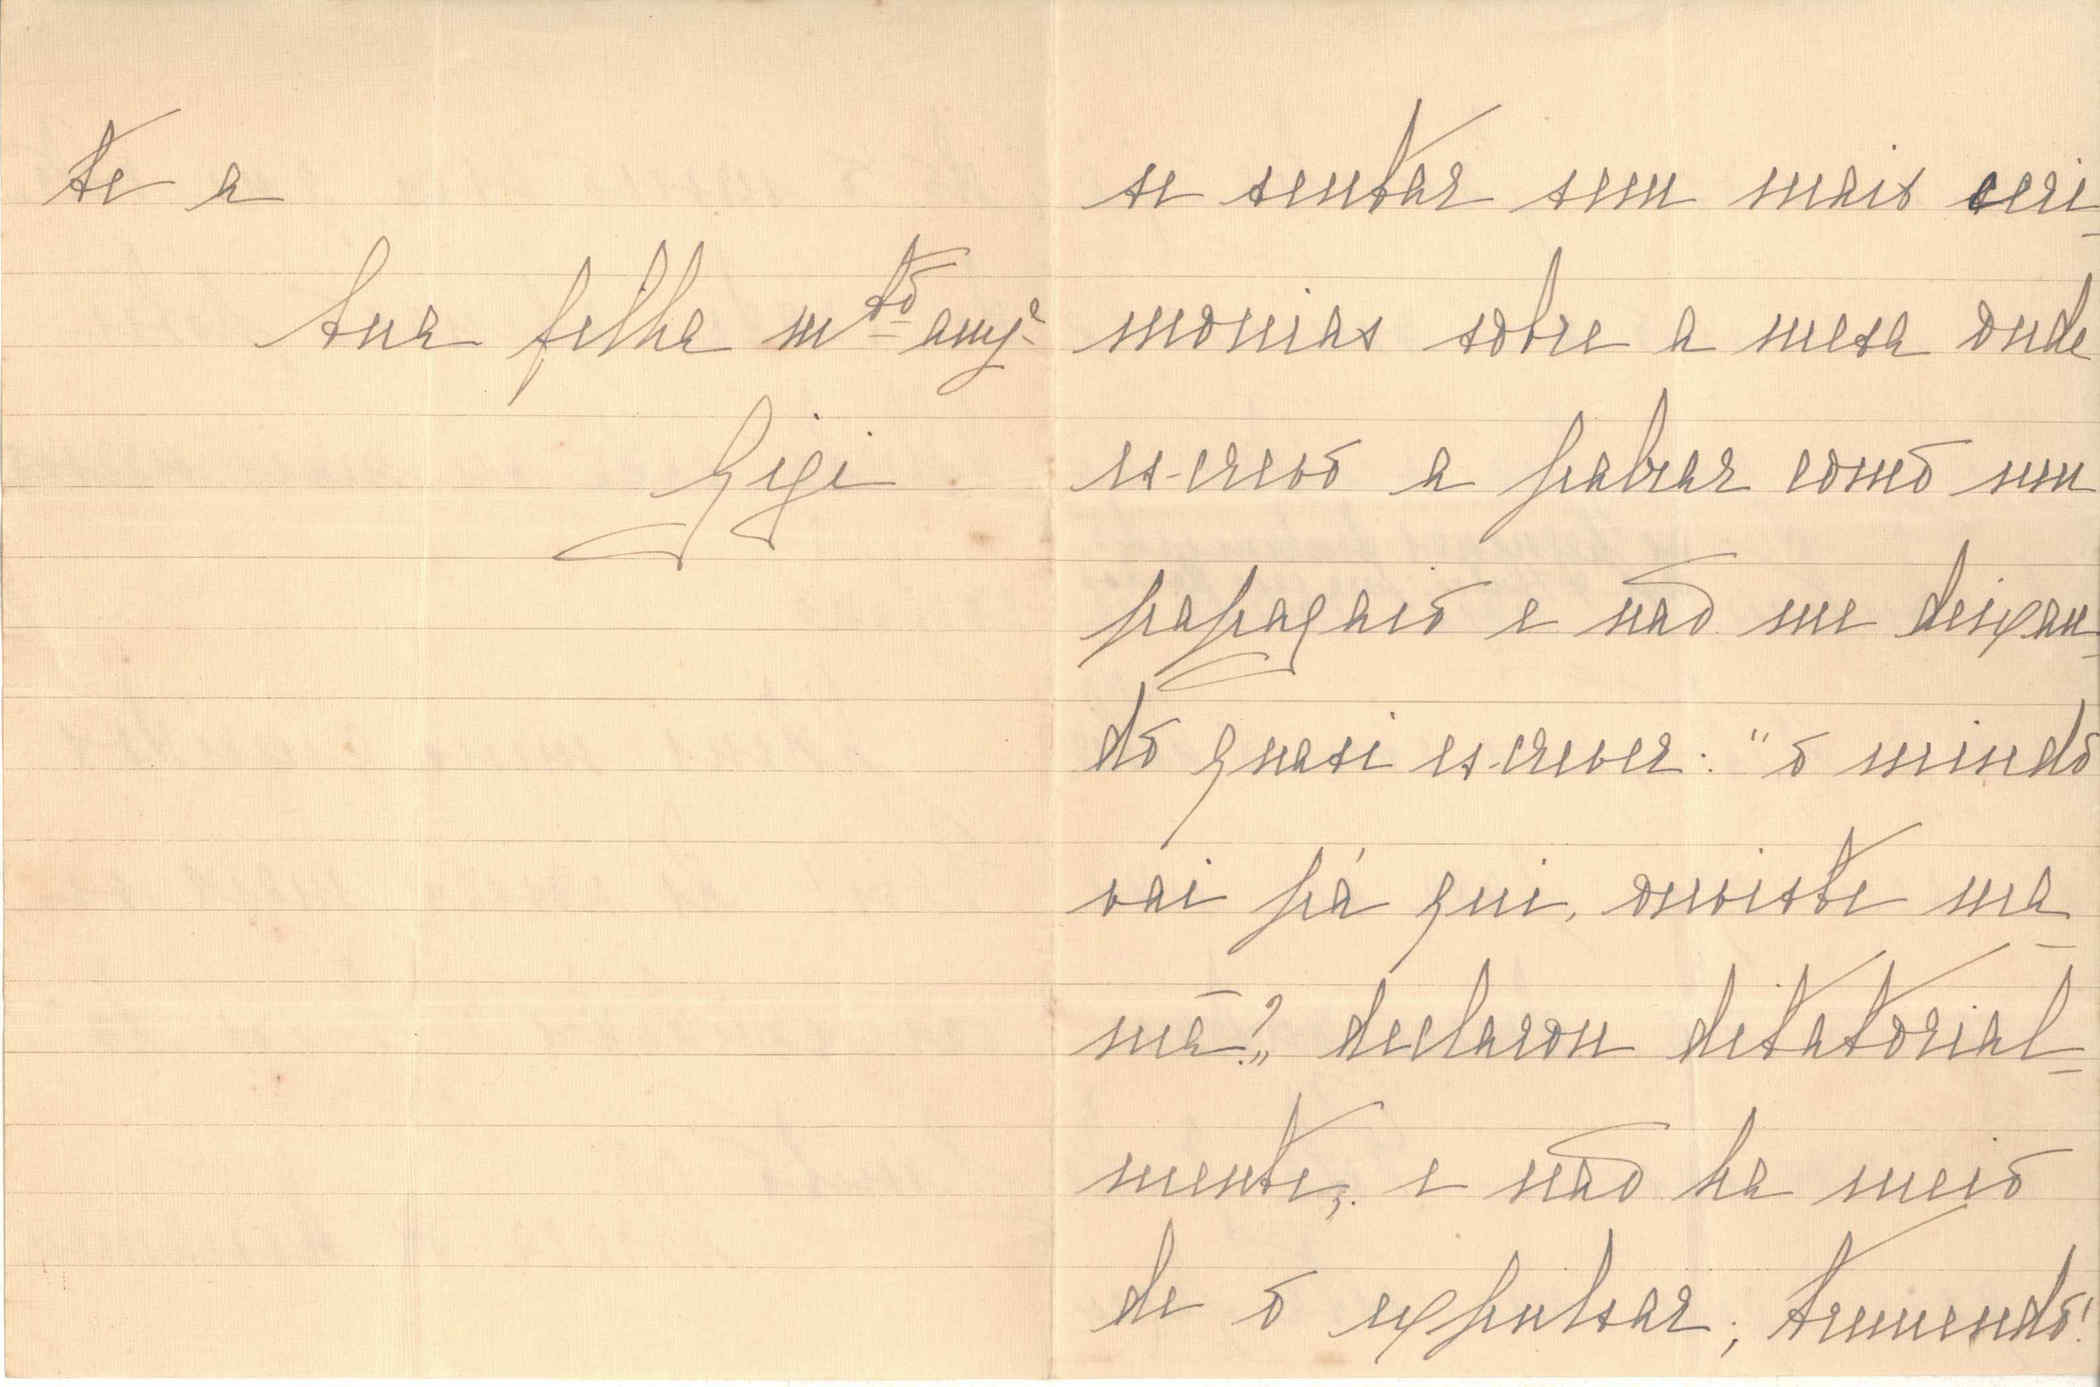 te a
tua filha m.to am.ga
Gigi
se sentar sem mais ceri-
monias sobre a mesa onde
escrevo a palrar como um
papagaio e não me deixan-
do quasi escrever: "o mindo
vai p'á qui, ouviste ma-
mã?" declarou ditatorial-
mente, e não ha meio
de o expulsar; tremendo!